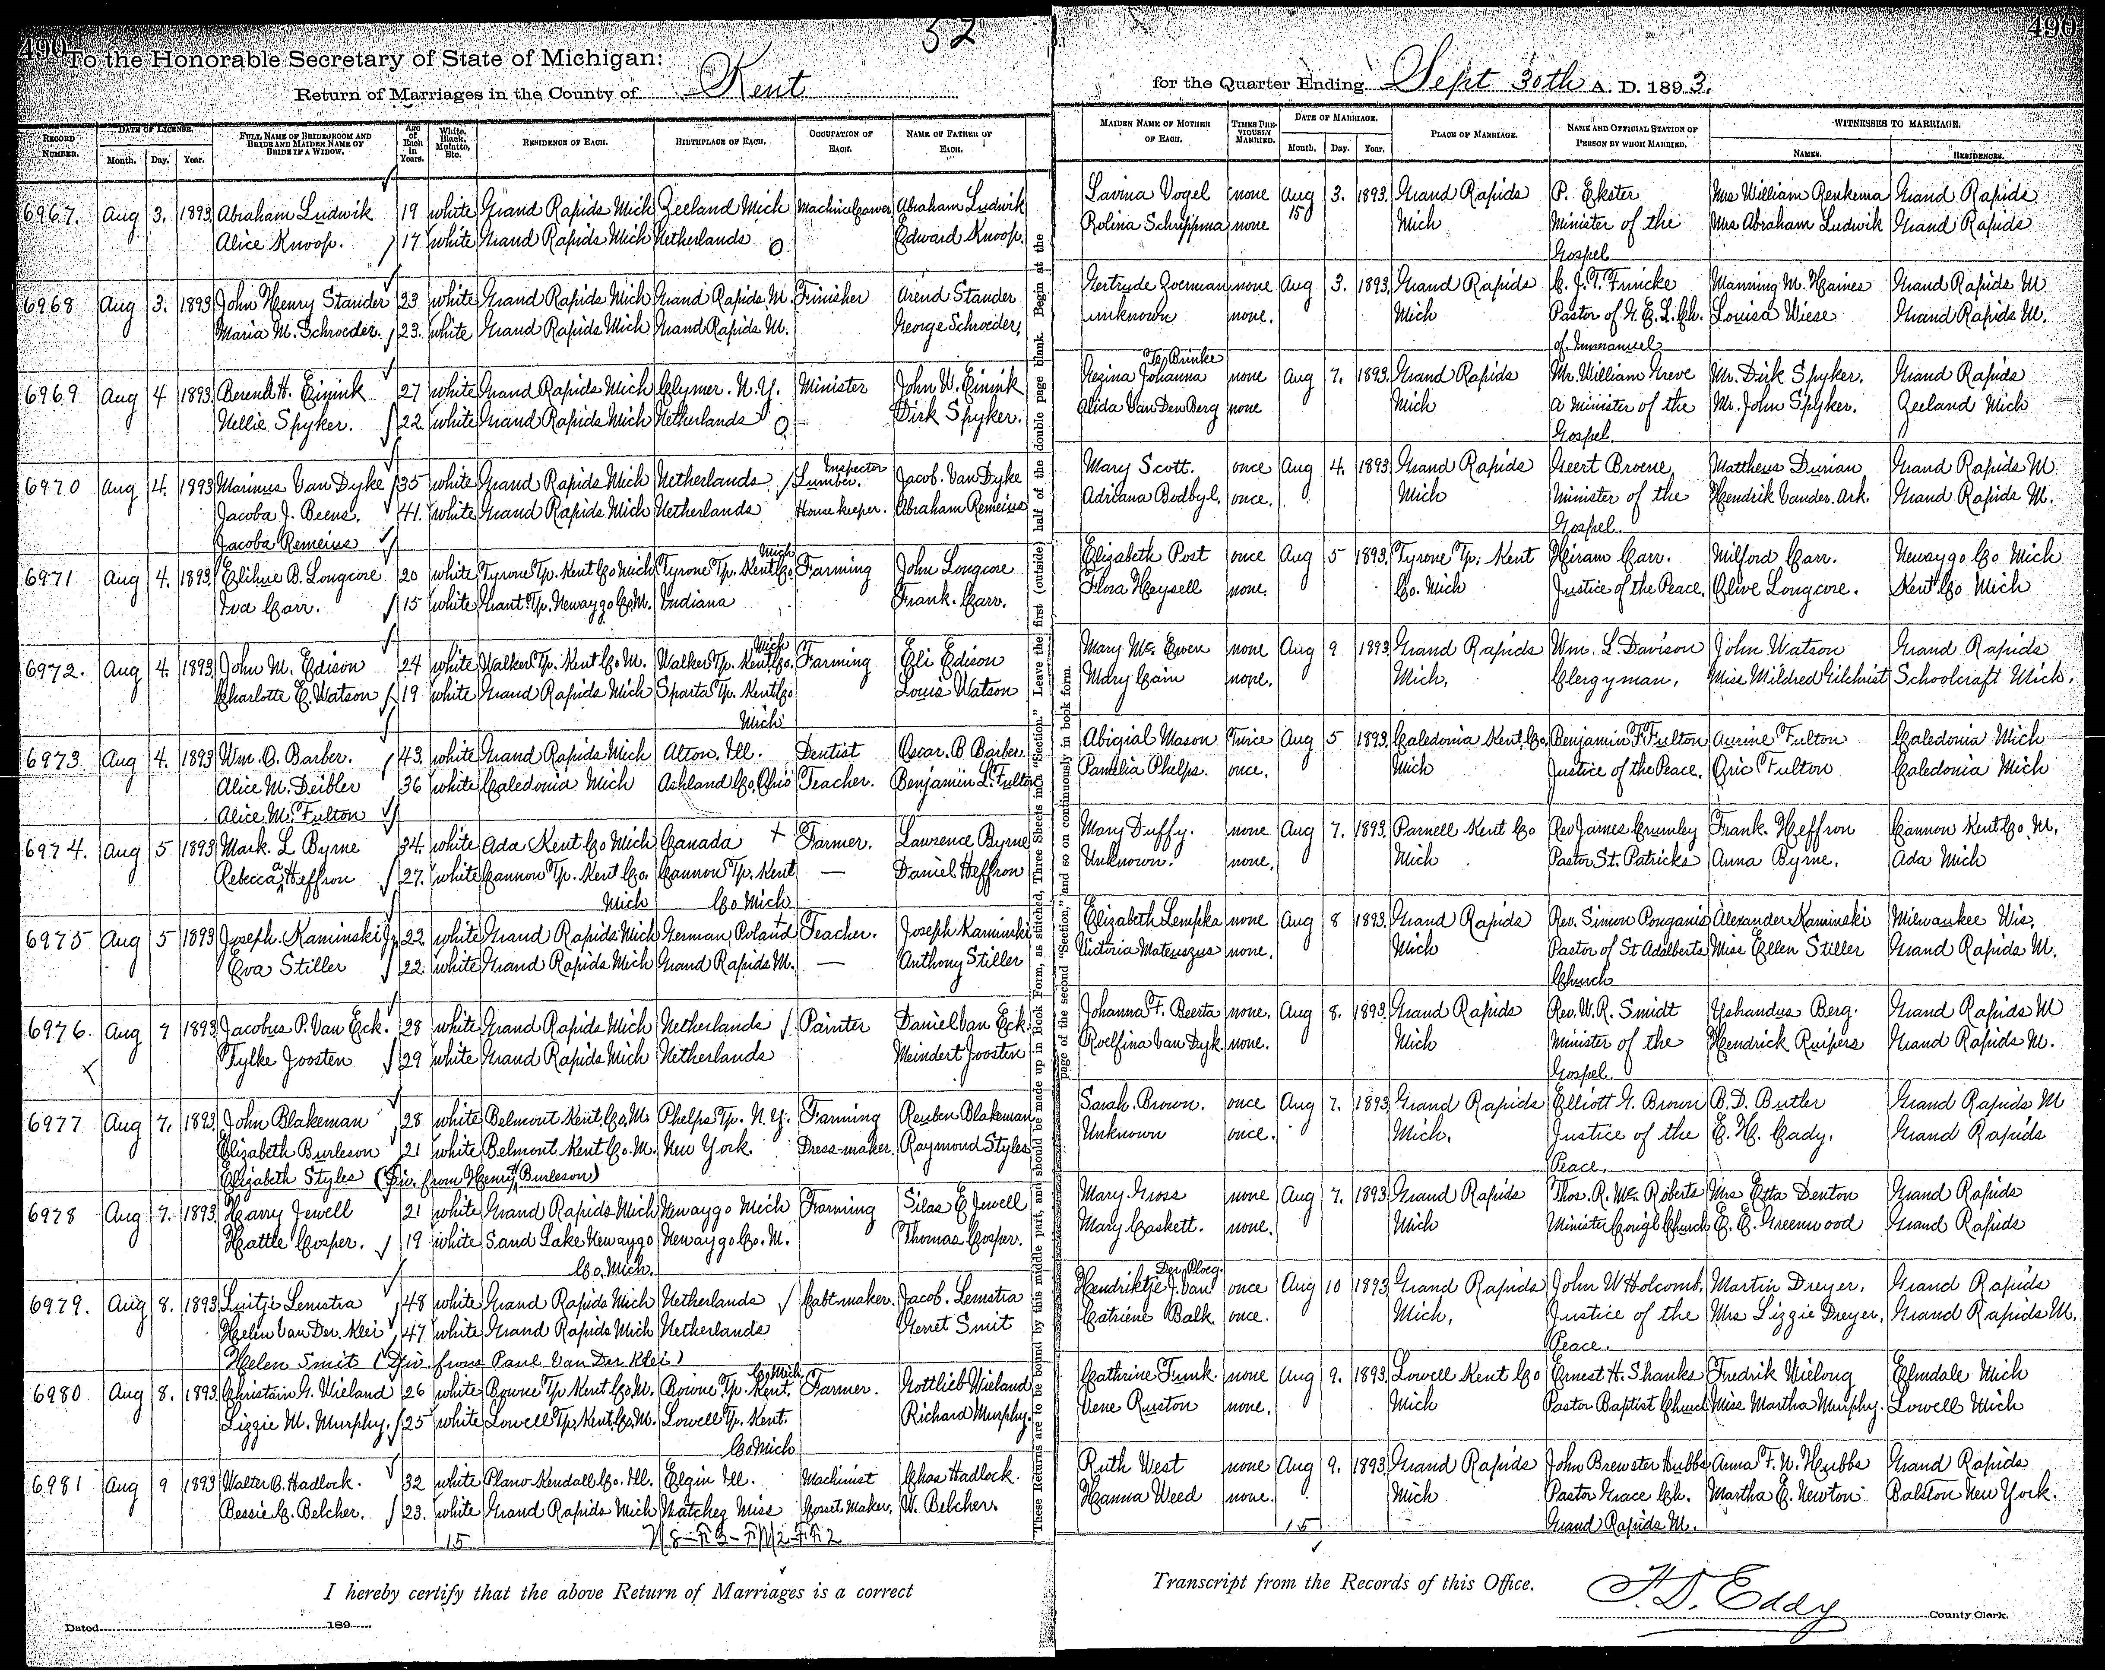 490
52
490
To the Honorable Secretary of State of Michigan:
Return of Marriages in the County of Kent
for the Quarter Ending Sept 30th A. D. 1893.
RECORD NUMBER.
DATE OF LICENSE.
Month. Day. Year.
FULL NAME OF BRIDEGROOM AND BRIDE AND MAIDEN NAME OF BRIDE IF A WIDOW.
Age of Each in Years.
White, Black, Mulatto, Etc.
RESIDENCE OF EACH.
BIRTHPLACE OF EACH.
OCCUPATION OF EACH.
NAME OF FATHER OF EACH.
MAIDEN NAME OF MOTHER OF EACH.
TIMES PREVIOUSLY MARRIED.
DATE OF MARRIAGE.
Month. Day. Year.
PLACE OF MARRIAGE.
NAME AND OFFICIAL STATION OF PERSON BY WHOM MARRIED.
WITNESSES TO MARRIAGE.
NAMES.
RESIDENCES.
6967. Aug 3. 1893 Abraham Ludwik 19 white Grand Rapids Mich Zeeland Mich Abraham Ludwik Lavina Vogel none Aug 3. 1893. Grand Rapids P. Ekster Mrs William Renkema Grand Rapids
Alice Knoop. 17 white Grand Rapids Mich Netherlands Edward Knoop. Rolina Schrippma none 15 Mich Minister of the Mrs Abraham Ludwik Grand Rapids
Gospel
6968 Aug 3. 1893 John Henry Stander 23 white Grand Rapids Mich Grand Rapids, M. Finisher Arend Stander Gertrude none Aug 3. 1893. Grand Rapids C. J. T. Frincke Manning M. Haines Grand Rapids M
Maria M. Schroeder. 23. white Grand Rapids Mich Grand Rapids M. George Schroeder. unknown none. Mich Pastor of G. E. L. Ch. Louisa Wiese Grand Rapids M.
of Immanuel
Te Brinke
6969 Aug 4 1893 Berend H. Einink 27 white Grand Rapids Mich Clymer. N.Y. Minister John W. Einink Gezina Johanna none Aug 7. 1893. Grand Rapids Mr. William Greve Mr. Dirk Spyker. Grand Rapids
Nellie Spyker. 22 white Grand Rapids Mich Netherlands Dirk Spyker. Alida Van Den Berg none Mich A Minister of the Mr. John Spyker. Zeeland Mich
Gospel.
Inspector
6970 Aug 4. 1893 Marinus Van Dyke 35 white Grand Rapids Mich Netherlands Lumber. Jacob. Van Dyke Mary Scott. once Aug 4. 1893. Grand Rapids Geert Broene Mattheus Durian Grand Rapids M.
Jacoba J. Beens. 41. white Grand Rapids Mich Netherlands House keeper. Abraham Remeius Adriana Bodbyl. once. Mich Minister of the Hendrik Vander. Ark. Grand Rapids M.
Jacoba Remeius Gospel.
Mich
6971 Aug 4. 1893. Elihue B. Longcore 20 white Tyrone Tp. Kent Co Mich Tyrone Tp. Kent Co. Farming John Longcore Elizabeth Post once Aug 5 1893. Tyrone Tp. Kent Hiram Carr. Milford Carr. Newaygo Co Mich
Iva Carr. 15 white Grant Tp. Newaygo Co M. Indiana Frank. Carr. Flora Heysell none. Co. Mich Justice of the Peace. Clive Longcore. Kent Co Mich
Mich
6972. Aug 4. 1893 John M. Edison 24 white Walker Tp. Kent Co M. Walker Tp. Kent Co. Farming Eli Edison Mary Mc Ewen none Aug 9 1893. Grand Rapids Wm. L. Davison John Watson Grand Rapids
Charlotte E. Watson 19 white Grand Rapids Mich Sparta Tp. Kent Co Louis Watson Mary Cain none. Mich. Clergyman. Miss Mildred Gilchrist Schoolcraft Mich.
Mich
6973 Aug 4. 1893 Wm. O. Barber. 43. white Grand Rapids Mich Alton. Ill. Dentist Oscar. B Barber. Abigial Mason Twice Aug 5 1893. Caledonia Kent Co. Benjamin F. Fulton Aurine Fulton Caledonia Mich
Alice M. Deibler 36 white Caledonia Mich Ashland Co, Ohio Teacher. Benjamin L. Fulton Pamelia Phelps. once. Mich Justice of the Peace. Eric Fulton Caledonia Mich
Alice M. Fulton
6974. Aug 5 1893 Mark. L Byrne 34. white Ada Kent Co Mich Canada Farmer. Lawrence Byrne Mary Duffy. none Aug 7. 1893. Parnell Kent Co Rev James Crumley Frank. Heffron Cannon Kent Co, M.
Rebecca A. Heffron 27. white Cannon Tp. Kent Co. Cannon Tp. Kent — Daniel Heffron Unknown. none. Mich Pastor St. Patricks Anna Byrne. Ada Mich
Mich Co Mich
6975 Aug 5 1893 Joseph. Kaminski Jr 22 white Grand Rapids Mich German, Poland Teacher. Joseph Kaminski Elizabeth Lempka none Aug 8 1893. Grand Rapids Rev. Simon Ponganis Alexander Kaminski Milwaukee Wis.
Eva Stiller 22. white Grand Rapids Mich Grand Rapids M. — Anthony Stiller Victoria Mateuszus none. Mich Pastor of St Adalberts Miss Ellen Stiller Grand Rapids M.
Church
6976. Aug 7 1893 Jacobus P. Van Eck. 28 white Grand Rapids Mich Netherlands Painter Daniel Van Eck. Johanna F. Beerta none. Aug 8. 1893. Grand Rapids Rev. W. R. Smidt Yshandus Berg. Grand Rapids M
Tylke Joosten 29 white Grand Rapids Mich Netherlands Meindert Joosten Roelfina Van Dyk. none. Mich Minister of the Hendrick Kuipers Grand Rapids M.
Gospel.
6977 Aug 7. 1893. John Blakeman 28 white Belmont Kent. Co, M. Phelps Tp. N. Y. Farming Reuben Blakeman Sarah. Brown. once Aug 7. 1893. Grand Rapids Elliott G. Brown B. D. Butler Grand Rapids M
Elizabeth Burleson 21 white Belmont Kent Co. M. New York. Dress-maker. Raymond Styles Unknown once. Mich. Justice of the E. H. Cady. Grand Rapids
Elizabeth Styles (Div. from Henry Burleson) Peace.
6978 Aug 7. 1893. Harry Jewell 21 white Grand Rapids Mich Newaygo Mich Farming Silas E Jewell Mary Gross none Aug 7. 1893. Grand Rapids Thos. R. Mc Roberts Mrs Etta Denton Grand Rapids
Hattie Cosper. 19 white Sand Lake Newaygo Newaygo Co. M. Thomas Cosper. Mary Caskett. none. Mich Minister Congl Church E. E. Greenwood Grand Rapids
Co, Mich.
Der Ploeg.
6979. Aug 8. 1893. Luitje Lemstra 48 white Grand Rapids Mich Netherlands Cabt-maker. Jacob. Lemstra Hendriktje J. Van once Aug 10 1893. Grand Rapids John W Holcomb. Martin Dreyer. Grand Rapids
Helen Van Der. Klei 47 white Grand Rapids Mich Netherlands Gerret Smit Catriene Balk once. Mich. Justice of the Mrs Lizzie Dreyer. Grand Rapids M.
Helen Smit (Div. from Paul Van Der Klei) Peace.
Co Mich.
6980 Aug 8. 1893. Christain G. Wieland 26 white Bowne Tp. Kent Co M. Bowne Tp. Kent. Farmer. Gottlieb Wieland Cathrine Funk. none Aug 9. 1893. Lowell Kent Co Ernest H. Shanks Fredrik Wieloug Elmdale Mich
Lizzie M. Murphy. 25 white Lowell Tp, Kent. Co, M. Lowell Tp. Kent. Richard Murphy. Vene Ruston none. Mich Pastor Baptist Church Miss Martha Murphy. Lowell Mich
Co Mich
6981 Aug 9 1893 Walter B. Hadlock. 32 white Plano Kendall Co. Ill. Elgin Ill. Machinist Chas Hadlock. Ruth West none Aug 9. 1893. Grand Rapids John Brewster Hubbs Anna F. W. Hubbs Grand Rapids
Bessie C. Belcher. 23. white Grand Rapids Mich Natchez Miss Corset Maker. W. Belcher. Hanna Weed none. Mich Pastor Grace Ch. Martha E. Newton Balston New York.
15 15 Grand Rapids M.
These Returns are to be bound by this middle part, and should be made up in Book Form, as stitched, Three Sheets in a "Section." Leave the first (outside) half of the double page blank. Begin at the
page of the second "Section," and so on continuously in book form.
I hereby certify that the above Return of Marriages is a correct
Transcript from the Records of this Office.
F. D. Eddy
County Clerk.
Dated 189